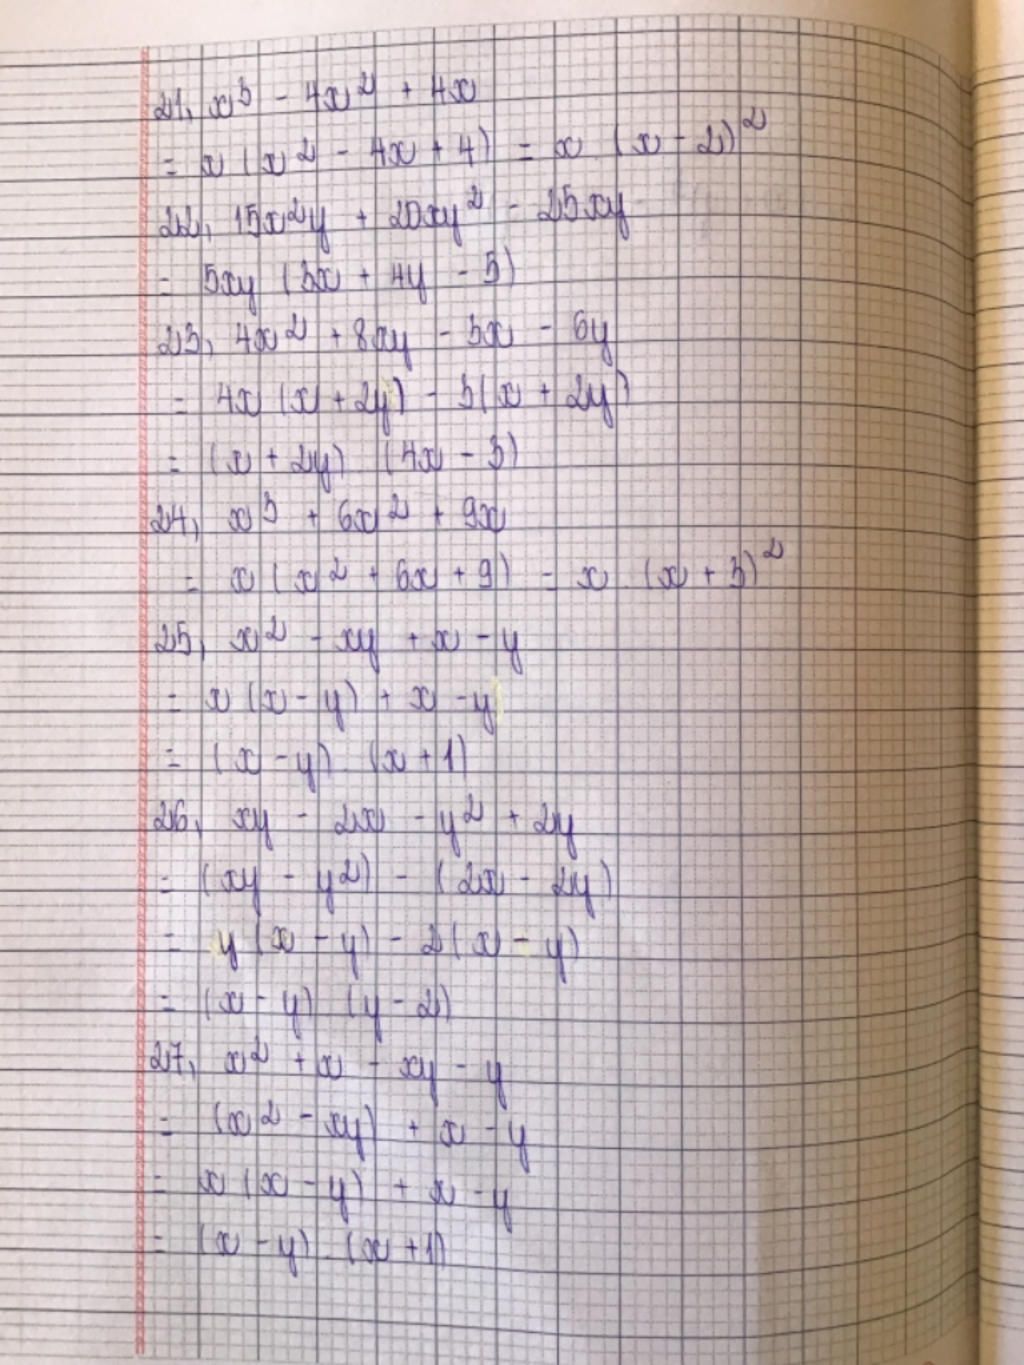 21, x³ - 4x² + 4x
= x (x² - 4x + 4) = x (x - 2)²
22, 15x²y + 20xy² - 25xy
= 5xy (3x + 4y - 5)
23, 4x² + 8xy - 3x - 6y
= 4x (x + 2y) - 3(x + 2y)
= (x + 2y) (4x - 3)
24, x³ + 6x² + 9x
= x (x² + 6x + 9) = x (x + 3)²
25, x² - xy + x - y
= x (x - y) + x - y
= (x - y) . (x + 1)
26, xy - 2x - y² + 2y
= (xy - y²) - (2x - 2y)
= y (x - y) - 2 (x - y)
= (x - y) (y - 2)
27, x² + x - xy - y
= (x² - xy) + x - y
= x (x - y) + x - y
= (x - y) . (x + 1)